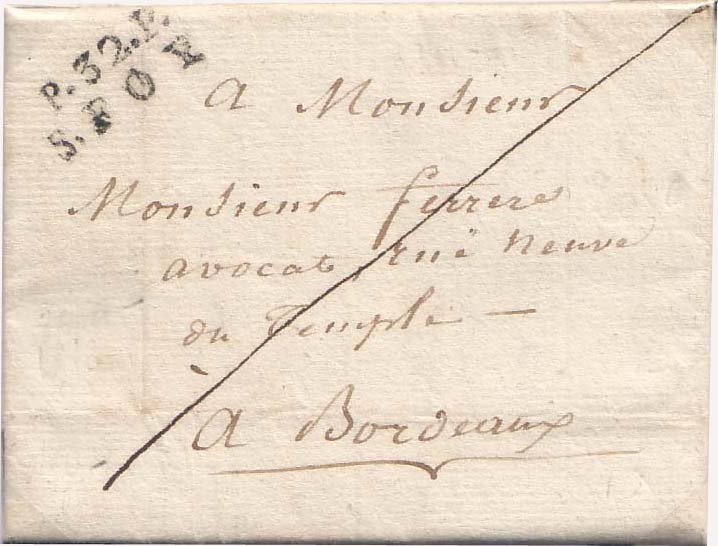 P.32.P.
S. FOY
a Monsieur
Monsieur ferrere
avocat, ruë neuve
du Temple —
à Bordeaux